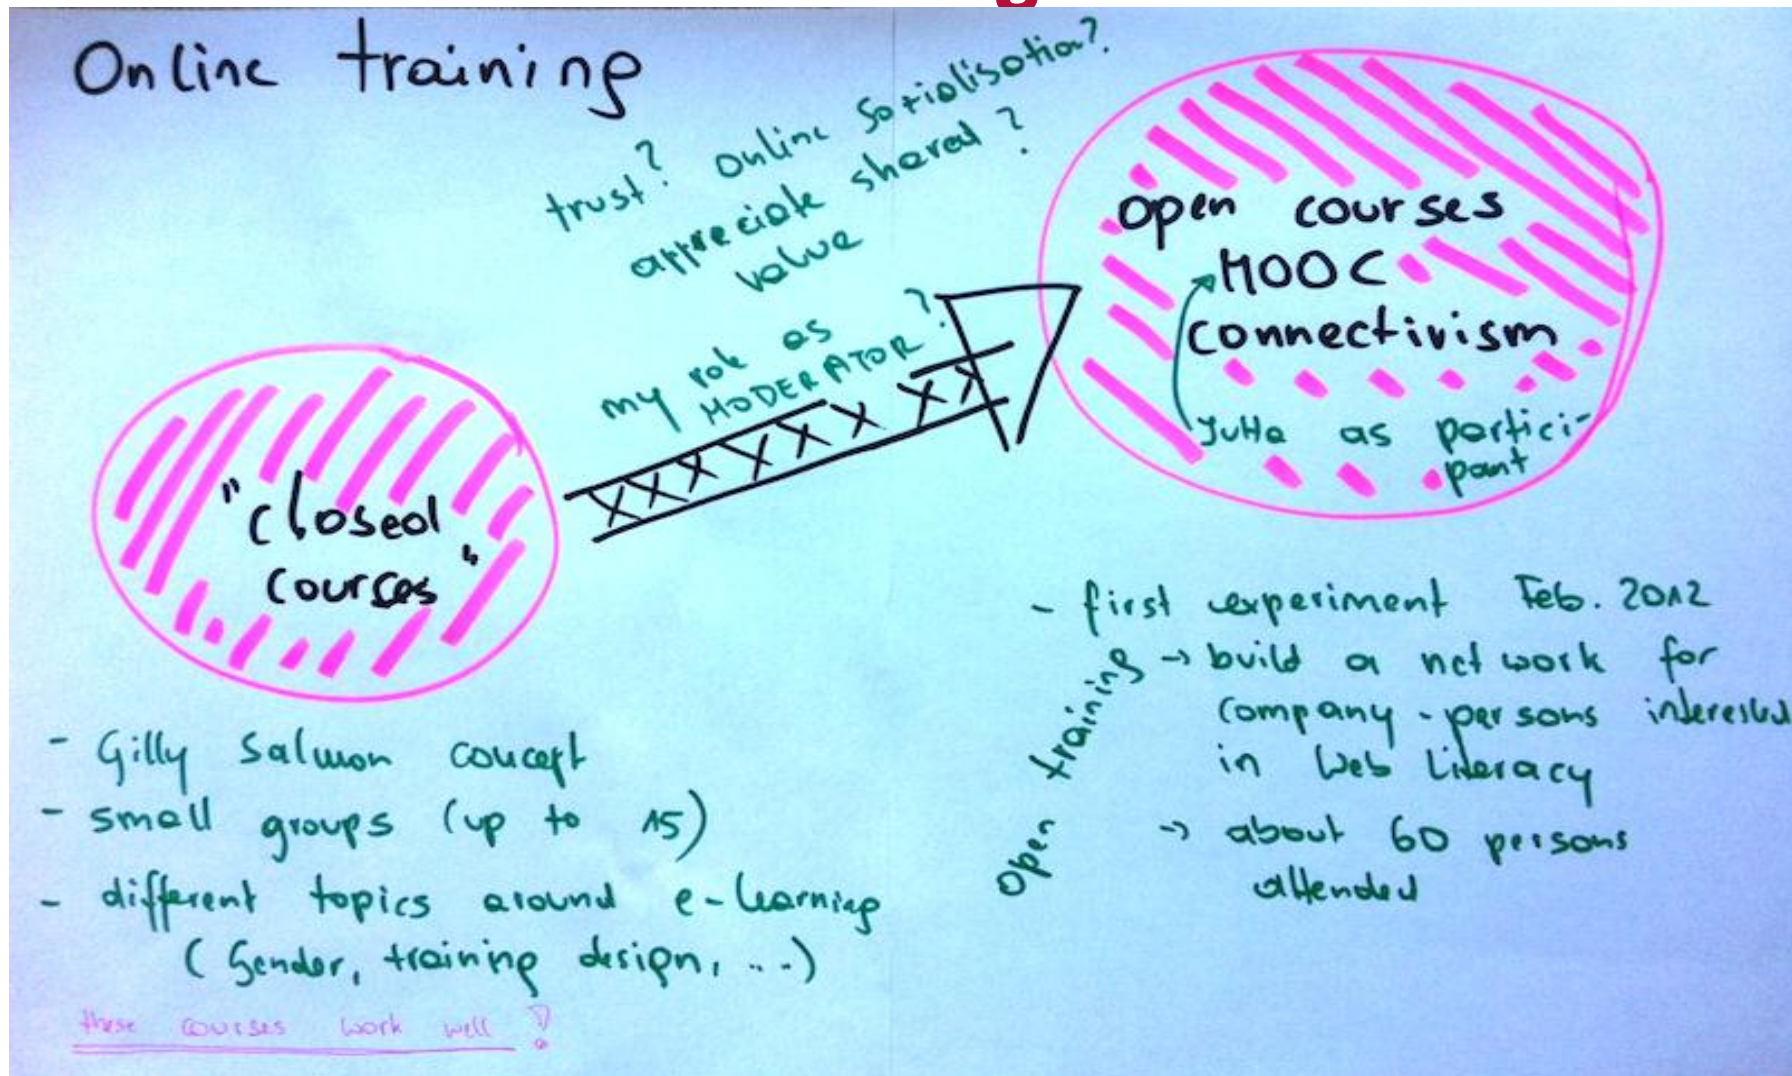 Online training
trust? Online Sozialisation?
appreciate shared?
value
my role as
MODERATOR?
open courses
MOOC
connectivism
Jutta as partici-
pant
"closed
courses"
- Gilly Salmon concept
- small groups (up to 15)
- different topics around e-learning
(Gender, training design, ...)
these courses work well!
- first experiment Feb. 2012
open training
→ build a network for
company-persons interested
in Web Literacy
→ about 60 persons
attended